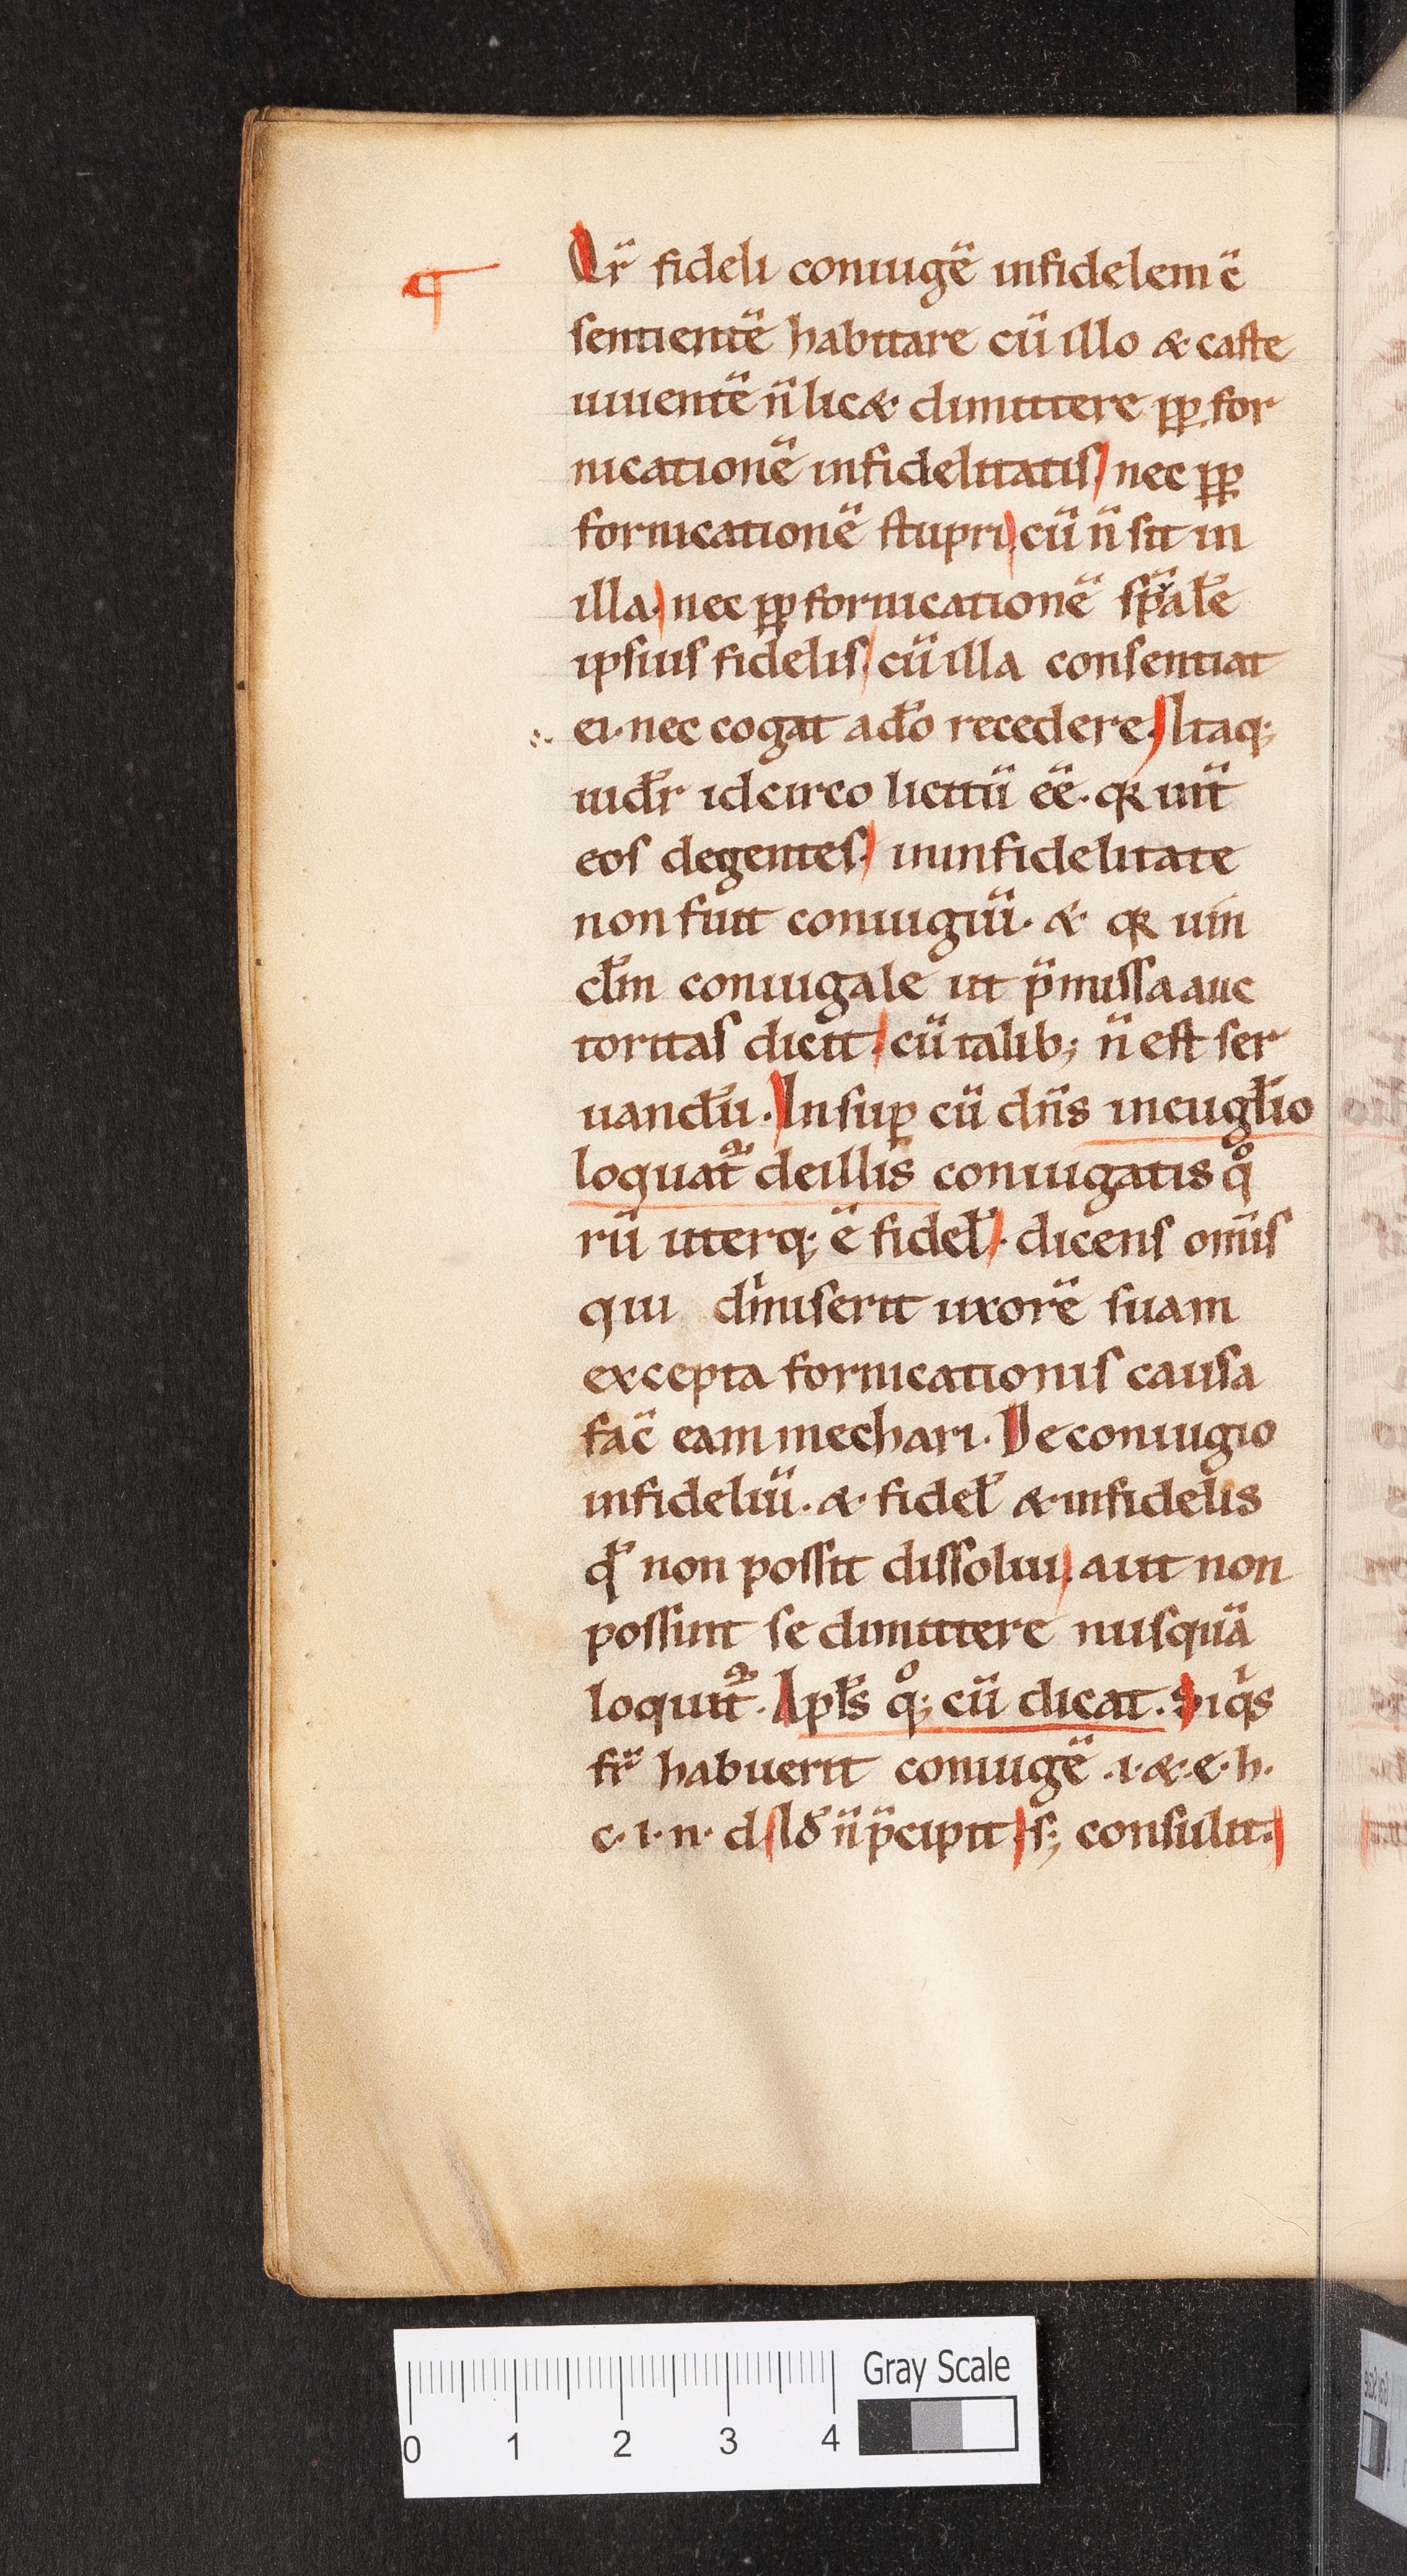 ¶ Qr̄ fideli coniugē infidelem c̄
sentientē habitare cū illo & caste
uiuentē n̄ lic& dimittere ꝓꝑ for
nicationē infidelitatis, nec ꝓꝑ
fornicationē stupri, cū n̄ sit in
illa, nec ꝓꝑ fornicationē sp̄ałe
ipsius fidelis, cū illa consentiat
ei. nec cogat a dō recedere. Itaq;
uidr̄ idcirco licitū eē. qꝛ uirt̄
eos degentes, in infidelitate
non fuit coniugiū. & qꝛ uin
cłm coniugale ut p̄missa auc
toritas dicit, cū talib; n̄ est ser
uandū. Insuꝑ cū dn̄s in euglīo
loquat̄ᷣ de illis coniugatis qͦ
rū uterq; ē fideł. dicens omīs
qui dimiserit uxorē suam
excepta fornicationis causa
fac̄ eam mechari. De coniugio
infideliū. & fideł & infidelis
qđ non possit dissolui, aut non
possint se dimittere nusquā
loquit̄ᷣ. Apłs qͦ; cū dicat. Siqͥs
fr̄ habuerit coniugē .i.&.e.h.
c. i. n. d Iđ n̄ p̄cipit, s; consulit.
0 1 2 3 4 Gray Scale